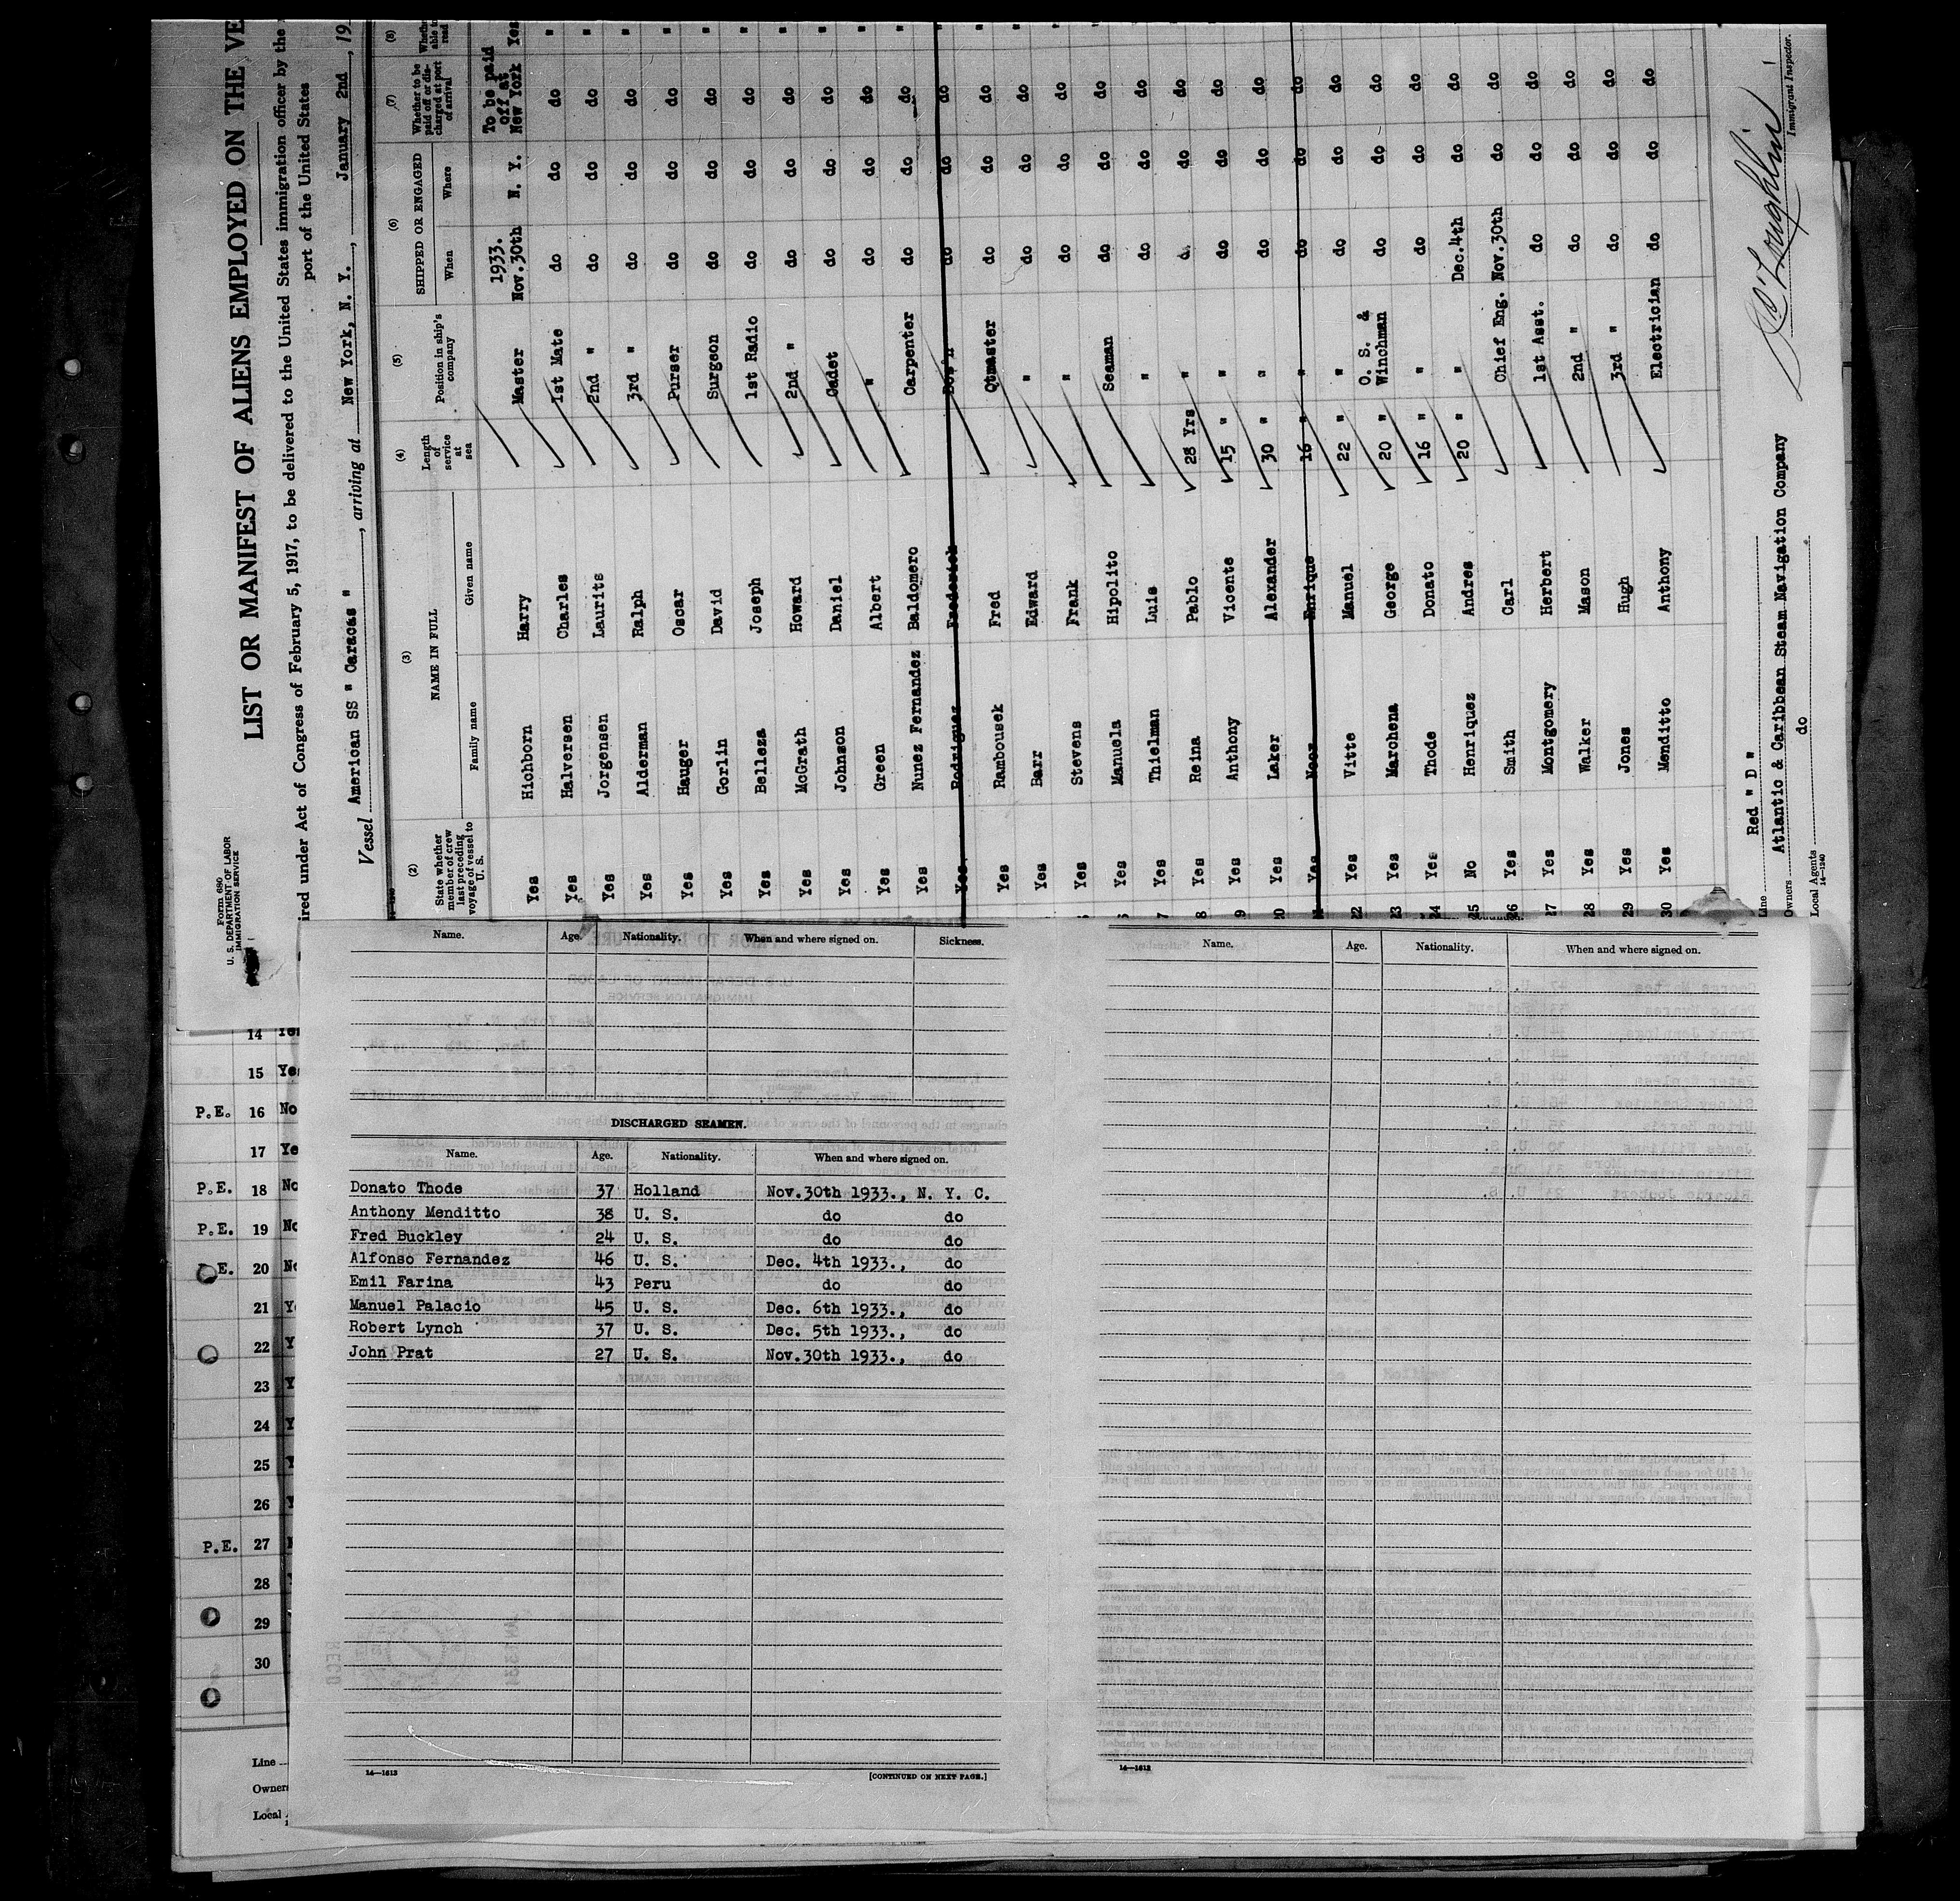 Form 680
U. S. DEPARTMENT OF LABOR
IMMIGRATION SERVICE
LIST OR MANIFEST OF ALIENS EMPLOYED ON THE VE
ired under Act of Congress of February 5, 1917, to be delivered to the United States immigration officer by the
port of the United States
Vessel American SS " Caracas ", arriving at New York, N. Y., January 2nd, 19
(2) (3) (4) (5) (6) (7) (8)
State whether member of crew last preceding voyage of vessel to U. S.
NAME IN FULL
Family name Given name
Length of service at sea
Position in ship's company
SHIPPED OR ENGAGED
When Where
Whether to be paid off or discharged at port of arrival
Whether able to read
Yes Hichborn Harry Master 1933. Nov.30th N. Y. To be paid off at New York Yes
Yes Halversen Charles 1st Mate do do do "
Yes Jorgensen Laurits 2nd " do do do "
Yes Alderman Ralph 3rd " do do do "
Yes Hauger Oscar Purser do do do "
Yes Gorlin David Surgeon do do do "
Yes Belleza Joseph 1st Radio do do do "
Yes McGrath Howard 2nd " do do do "
Yes Johnson Daniel Cadet do do do "
Yes Green Albert " do do do "
Yes Nunez Fernandez Baldomero Carpenter do do do "
Yes Rodriguez Frederick Bos'n do do do
Yes Rambousek Fred Qtmaster do do do "
Yes Barr Edward " do do do "
Yes Stevens Frank " do do do "
Yes Manuela Hipolito Seaman do do do "
7 Yes Thielman Luis " do do do "
8 Yes Reina Pablo 28 Yrs " do do do "
9 Yes Anthony Vicente 15 " " do do do "
20 Yes Laker Alexander 30 " " do do do "
21 Yes Noer Enrique 16 " " do do do
22 Yes Vitte Manuel 22 " " do do do
23 Yes Marchena George 20 " O. S. & Winchman do do do
24 Yes Thode Donato 16 " " do do do
25 No Henriquez Andres 20 " " Dec.4th do do
26 Yes Smith Carl Chief Eng. Nov.30th do do
27 Yes Montgomery Herbert 1st Asst. do do do
28 Yes Walker Mason 2nd " do do do
29 Yes Jones Hugh 3rd " do do do
30 Yes Menditto Anthony Electrician do do do
Line Red " D "
Owners Atlantic & Caribbean Steam Navigation Company
Local Agents do
14—1240
Immigrant Inspector.
Name. Age. Nationality. When and where signed on. Sickness.
DISCHARGED SEAMEN.
Name. Age. Nationality. When and where signed on.
Donato Thode 37 Holland Nov.30th 1933., N. Y. C.
Anthony Menditto 38 U. S. do do
Fred Buckley 24 U. S. do do
Alfonso Fernandez 46 U. S. Dec. 4th 1933., do
Emil Farina 43 Peru do do
Manuel Palacio 45 U. S. Dec. 6th 1933., do
Robert Lynch 37 U. S. Dec. 5th 1933., do
John Prat 27 U. S. Nov.30th 1933., do
14—1613 [CONTINUED ON NEXT PAGE.]
Name. Age. Nationality. When and where signed on.
14—1613
14 Yes
15 Yes
P.E. 16 No
17 Ye
P.E. 18 No
P.E. 19 No
P.E. 20 No
21 Y
22 Y
23 Y
24 Y
25 Y
26 Y
P.E. 27
28
29
30
Line
Owners
Local